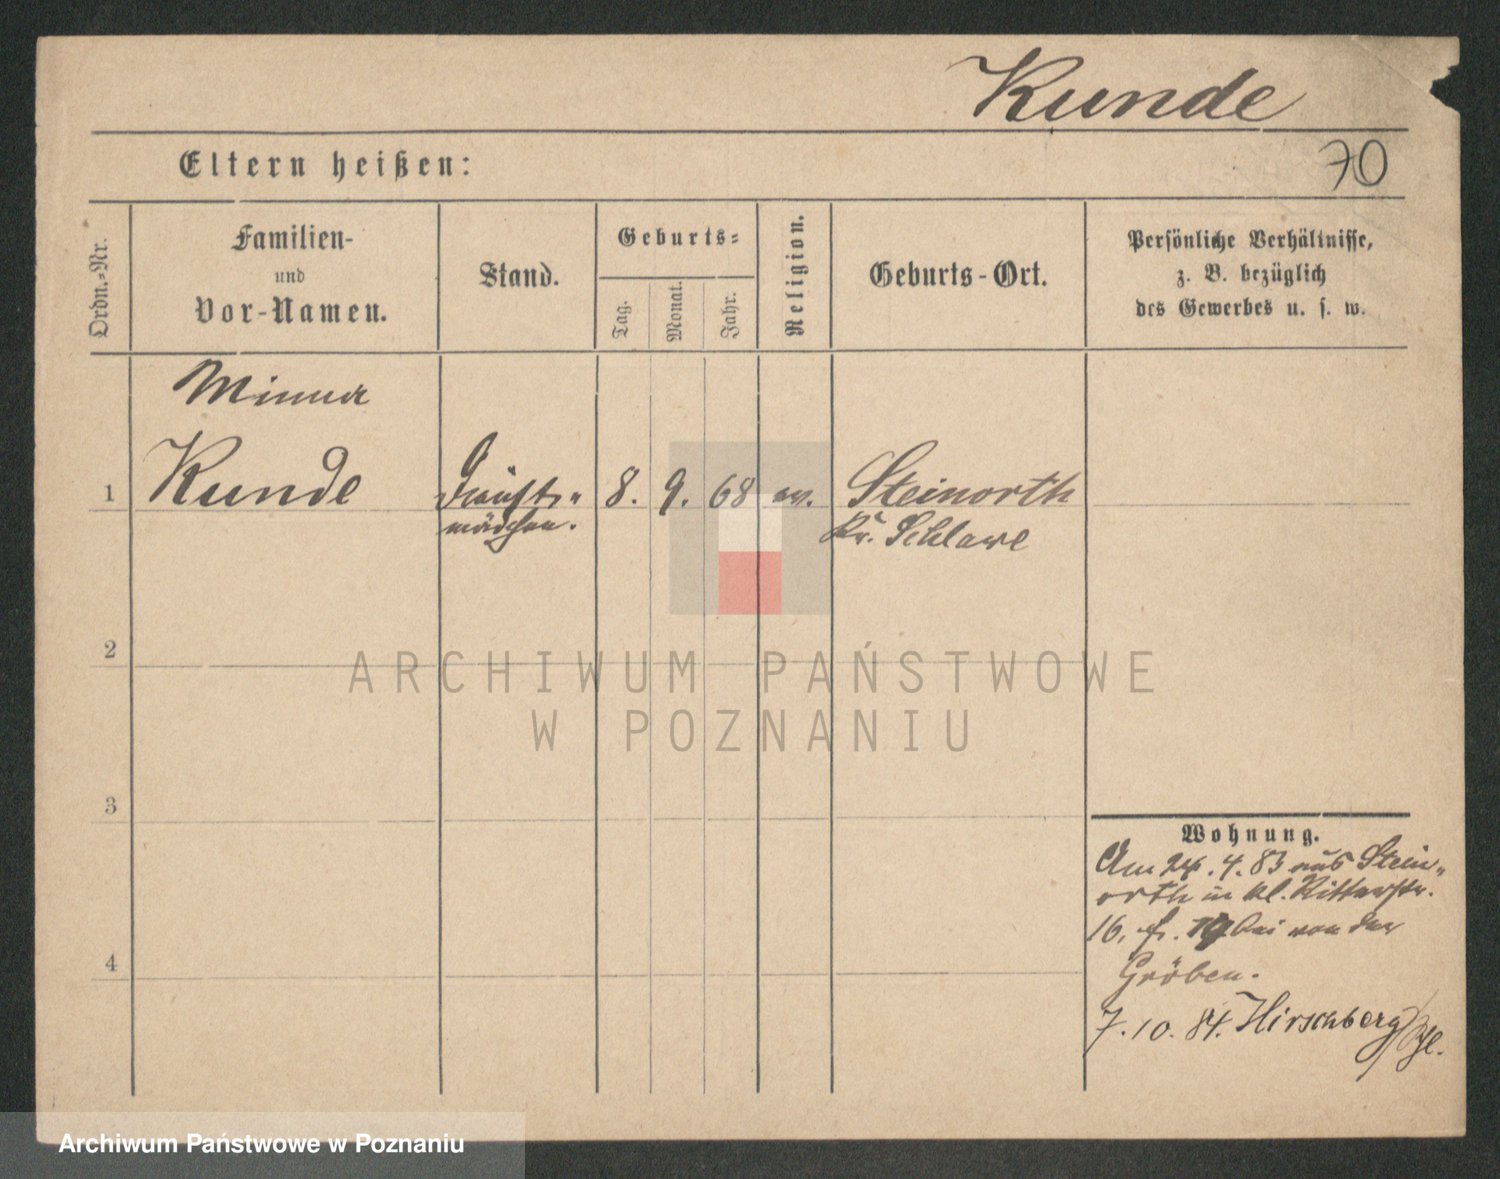 Kunde
Eltern heißen:
70
Ordn.-Nr.
Familien-
und
Vor-Namen.
Stand.
Geburts-
Tag.
Monat.
Jahr.
Religion.
Geburts-Ort.
Persönliche Verhältnisse,
z. B. bezüglich
des Gewerbes u. s. w.
Minna
1 Kunde Dienst- 8. 9. 68 ev. Steinorth
mädchen. Kr. Schlawe
2
3
4
Wohnung.
Am 24. 4. 83 aus Stein-
orth in kl. Ritterstr.
16. bei von der
Gröben.
7. 10. 84. Hirschberg/Schl.
ARCHIWUM PAŃSTWOWE
W POZNANIU
Archiwum Państwowe w Poznaniu